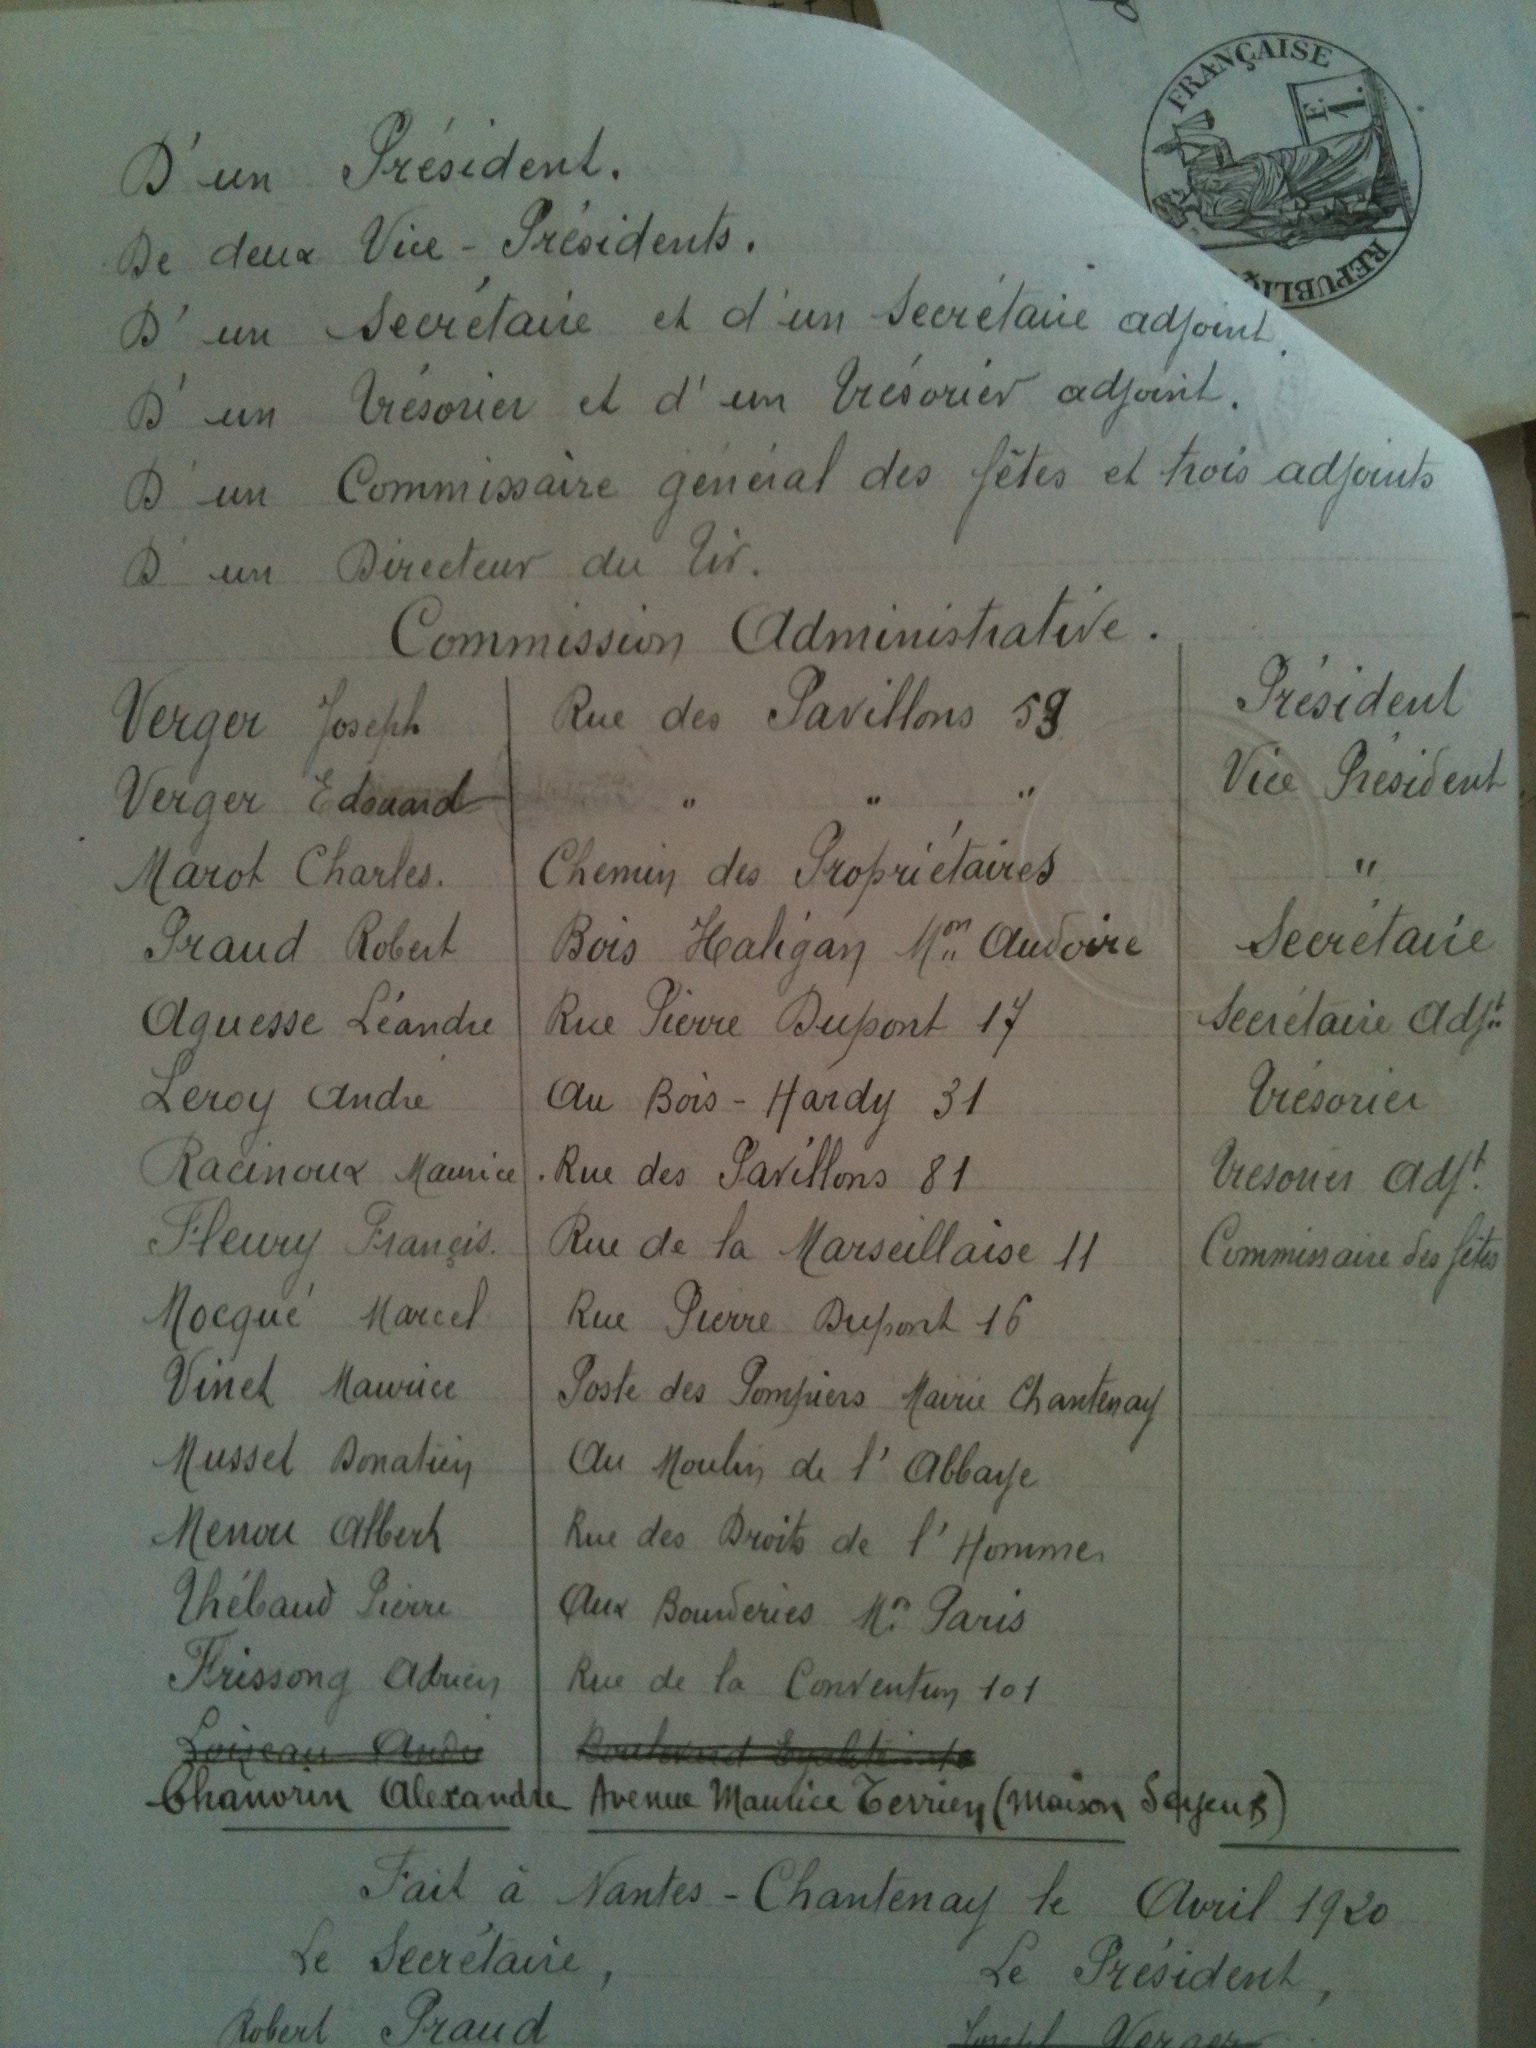 FRANÇAISE
F.
1.
D'un Président.
De deux Vice-Présidents.
D'un Secrétaire et d'un Secrétaire adjoint.
D'un Trésorier et d'un Trésorier adjoint.
D'un Commissaire général des fêtes et trois adjoints
D'un Directeur du Tir.
Commission Administrative.
Verger Joseph Rue des Pavillons 59 Président
Verger Edouard " " " Vice Président
Marot Charles. Chemin des Propriétaires "
Praud Robert Bois Haligan Mon Audoire Secrétaire
Aguesse Léandre Rue Pierre Dupont 17 Secrétaire Adjt
Leroy André Au Bois-Hardy 31 Trésorier
Racinoux Maurice. Rue des Pavillons 81 Tresorier Adjt.
Fleury François. Rue de la Marseillaise 11 Commissaire des fêtes
Mocqué Marcel Rue Pierre Dupont 16
Vinet Maurice Poste des Pompiers Mairie Chantenay
Musset Donatien Au Moulin de l'Abbaye
Menou Albert Rue des Droits de l'Homme
Thébaud Pierre Aux Bourderies Mn Paris
Frissong Adrien Rue de la Convention 101
Loiseau André Boulevard Egalité
Chanvrin Alexandre Avenue Maurice Terrien (Maison)
Fait à Nantes-Chantenay le Avril 1920
Le Secrétaire, Le Président,
Robert Praud Joseph Verger